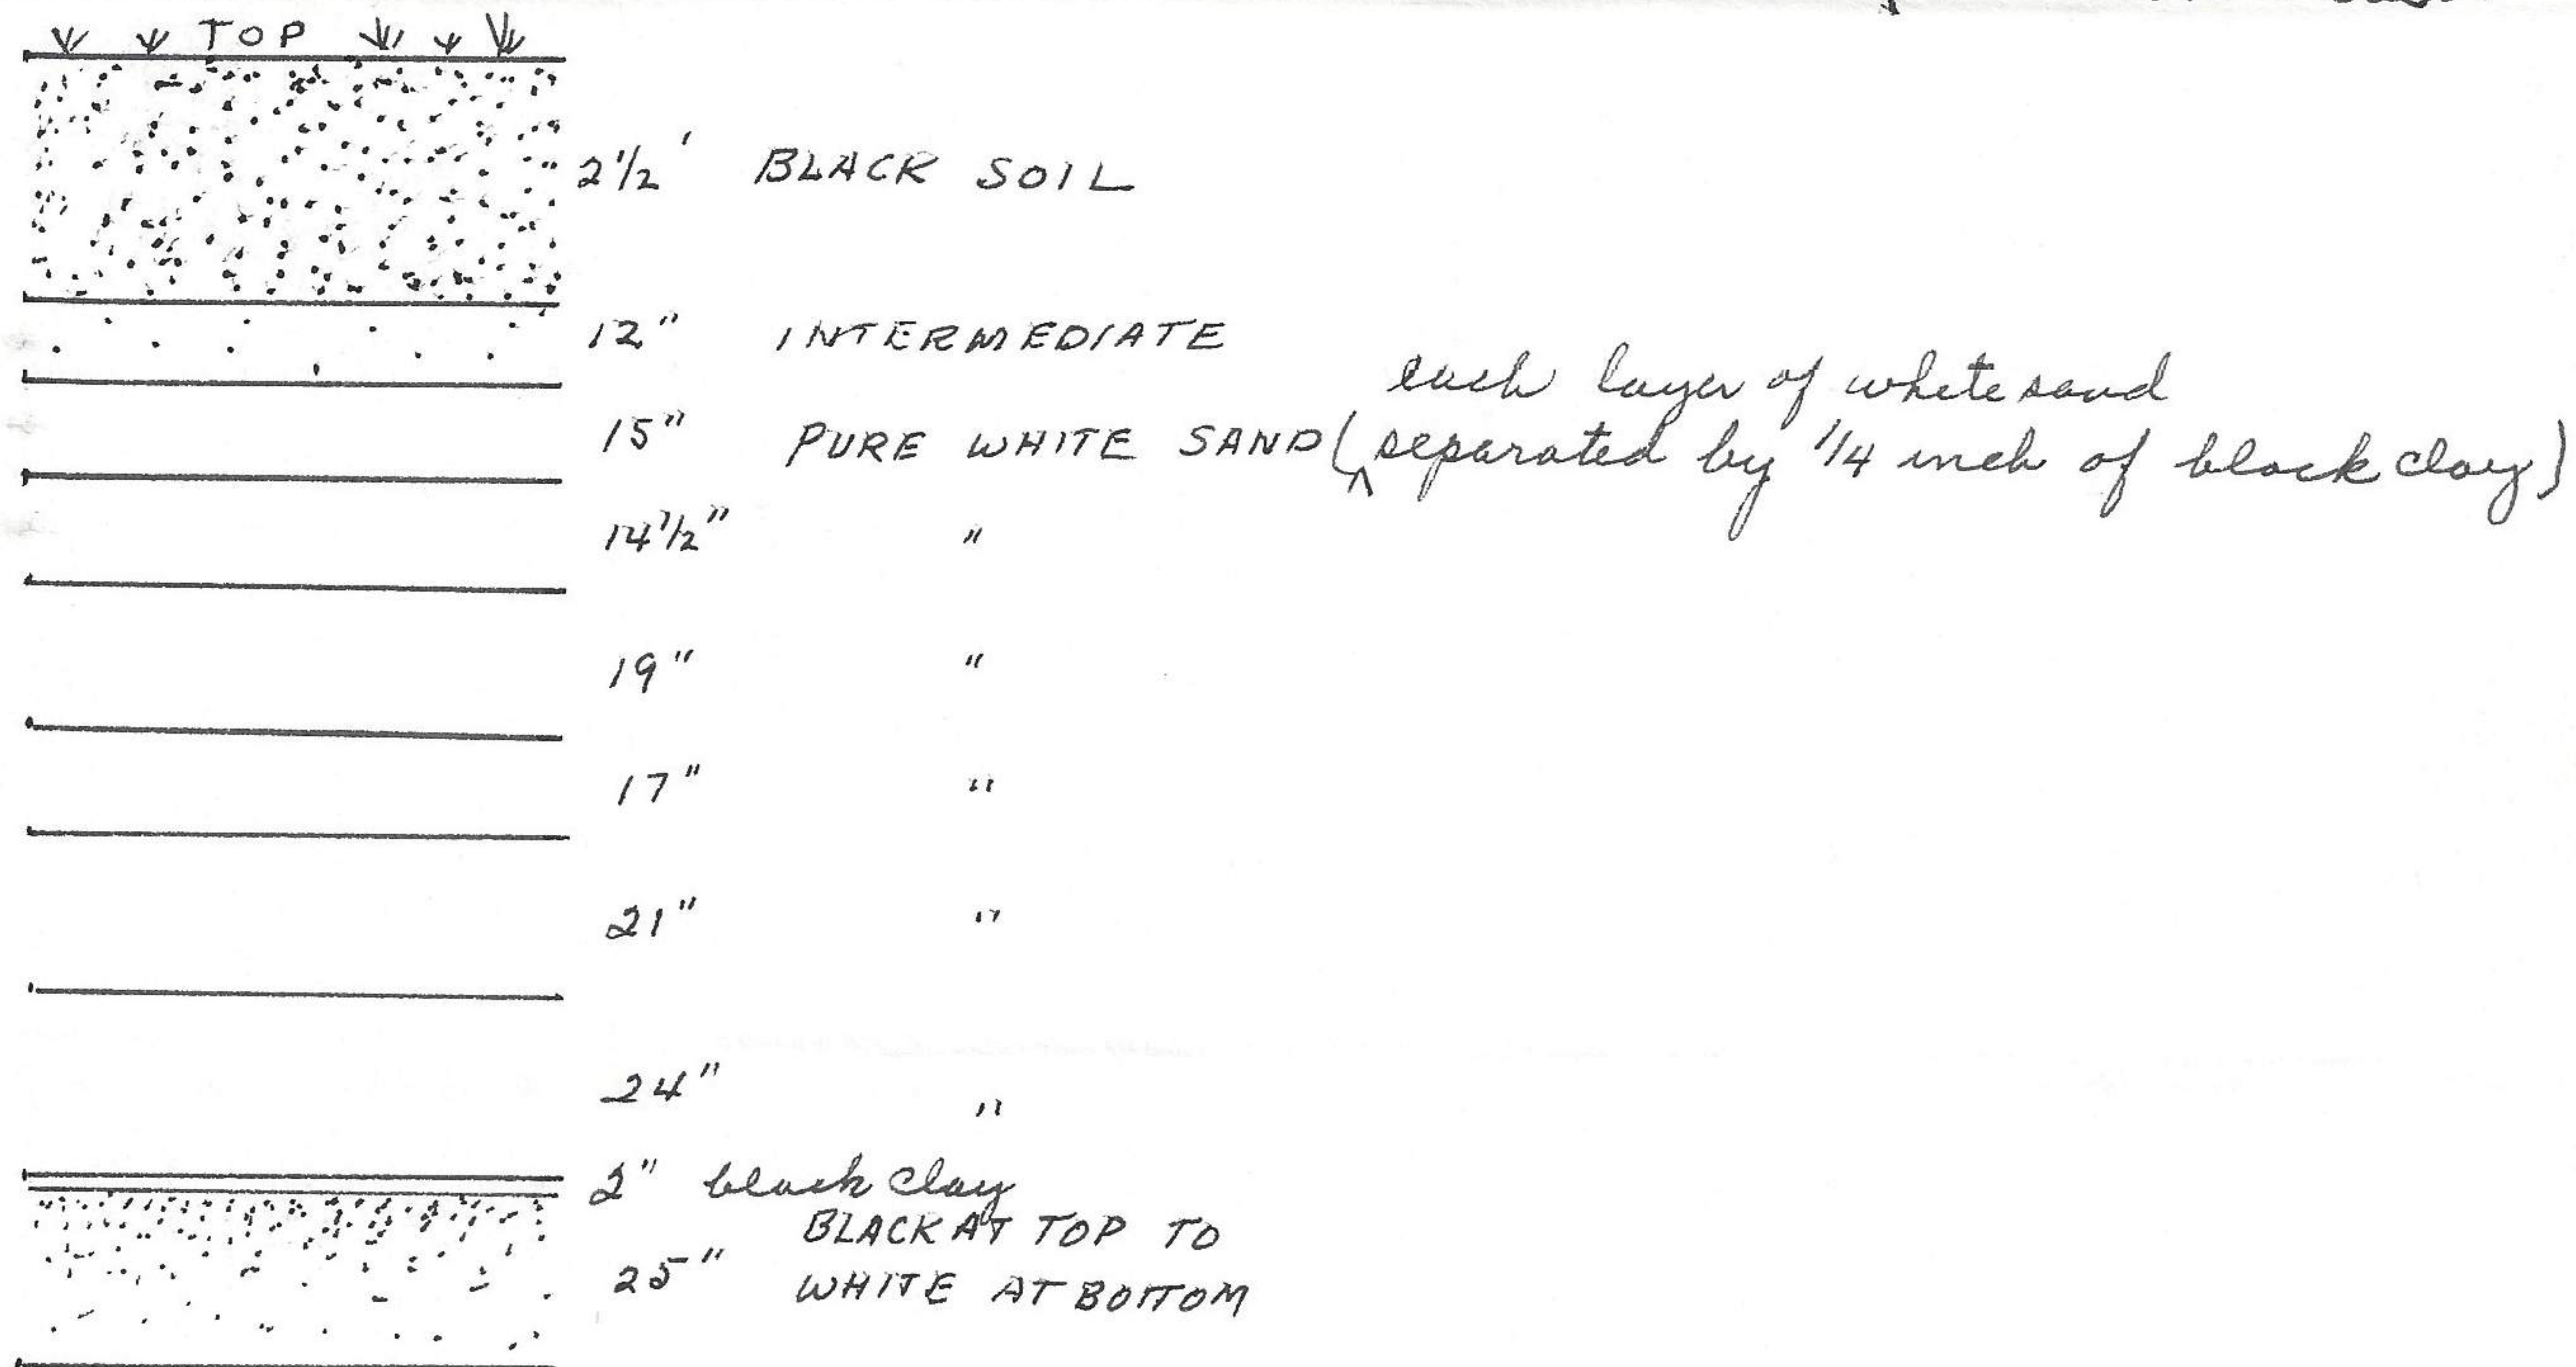 TOP
2 1/2' BLACK SOIL
12" INTERMEDIATE
each layer of white sand
15" PURE WHITE SAND (separated by 1/4 inch of black clay)
14 1/2" "
19" "
17" "
21" "
24" "
2" black clay
BLACK AT TOP TO
25" WHITE AT BOTTOM